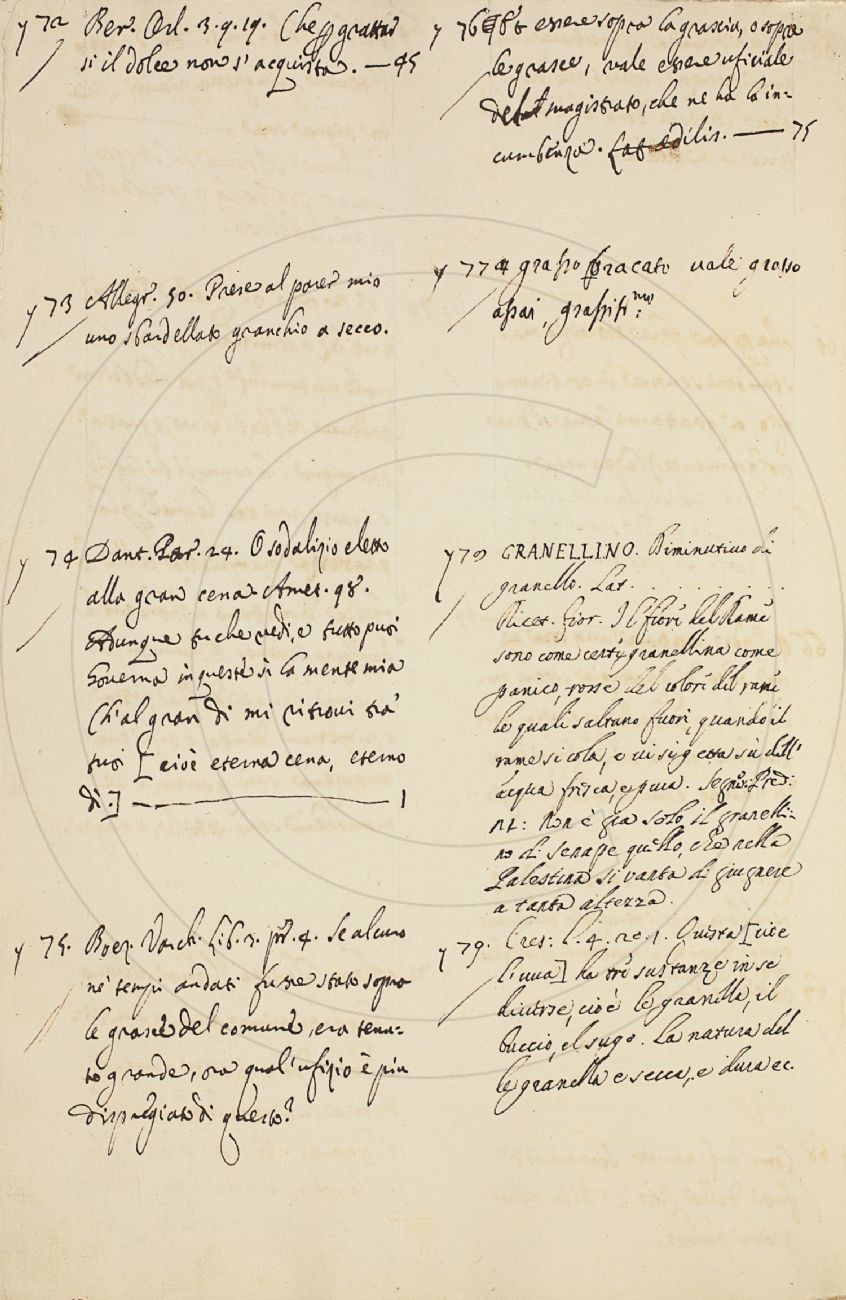 y 72 Ber. Orl. 3. 9. 19. Che p grattar
si il dolce non s'acquista. — 45
y 73 Allegr. 50. Prese al parer mio
uno sbardellato granchio a secco.
y 74 Dant. Par. 24. O sodalizio eletto
alla gran cena. Amet. 98.
Adunque tu che vedi, e tutto puoi
Governa in questi sì la mente mia
Ch'al gran dì mi ritrovi tra'
tuoi [cioè eterna cena, eterno
dì.] — 1
y 75. Boez. Varch. Lib. 3. pr. 4. Se alcuno
ne' tempi andati fusse stato sopra
le grasce del comune, era tenu-
to grande, ora qual'ufizio è più
dispregiato di questo?
y 76 essere sopra la grascia, o sopra
le grasce, vale essere ufiziale
del magistrato, che ne ha la in-
cumbenza. Lat. edilis. — 75
y 77 grasso bracato vale grasso
assai, grassissmo:
y 79 GRANELLINO. Diminutivo di
granello. Lat. . . . . . .
Ricet. Fior. Il fiore del Rame
sono come certi granellina come
panico, rosse del colore del rame
le quali saltano fuori, quando il
rame si cola, e vi si getta sù dell'
acqua fresca, e pura. Segn: Pred:
Non è gia solo il granelli-
no di senape quello, che nella
Palestina si vanta di giugnere
a tanta altezza.
y 79. Cres: l. 4. 20. 1. Questa [cioe
l'uva] ha tre sustanze in se
diverse, cioè le granella, il
buccio, el sugo. La natura del
le granella e secca, e dura ec.